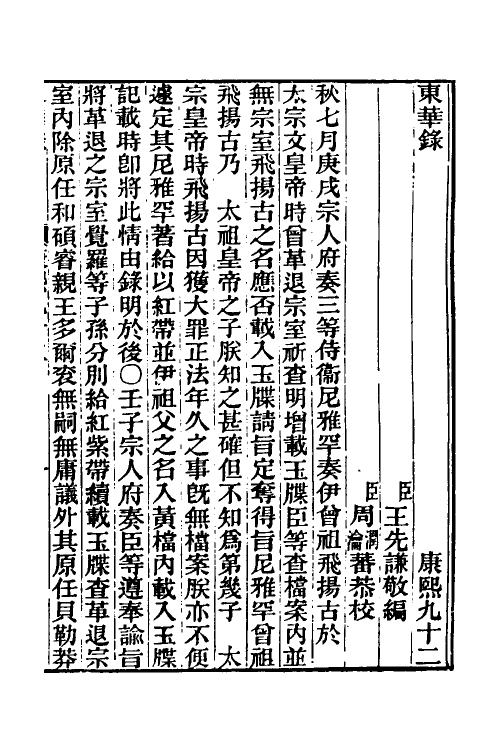 東華錄　康熙九十二
臣王先謙敬編
臣周潤蕃周瀹蕃恭校
秋七月庚戌宗人府奏三等侍衞尼雅罕奏伊曾祖飛揚古於
太宗文皇帝時曾革退宗室祈查明增載玉牒臣等查檔案內並
無宗室飛揚古之名應否載入玉牒請旨定奪得旨尼雅罕曾祖
飛揚古乃　太祖皇帝之子朕知之甚確但不知爲第幾子　太
宗皇帝時飛揚古因獲大罪正法年久之事旣無檔案朕亦不便
遽定其尼雅罕著給以紅帶並伊祖父之名入黃檔內載入玉牒
記載時卽將此情由錄明於後〇壬子宗人府奏臣等遵奉諭旨
將革退之宗室覺羅等子孫分別給紅紫帶續載玉牒查革退宗
室內除原任和碩睿親王多爾衮無嗣無庸議外其原任貝勒莽